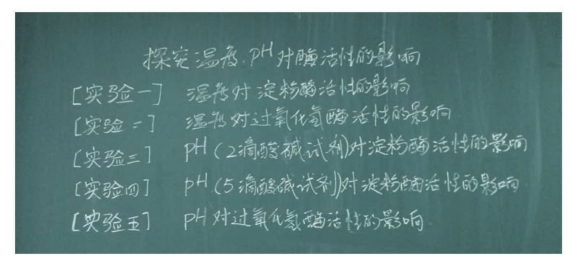 探究温度、pH对酶活性的影响
[实验一] 温度对淀粉酶活性的影响
[实验二] 温度对过氧化氢酶活性的影响
[实验三] pH(2滴酸碱试剂)对淀粉酶活性的影响
[实验四] pH(5滴酸碱试剂)对淀粉酶活性的影响
[实验五] pH对过氧化氢酶活性的影响